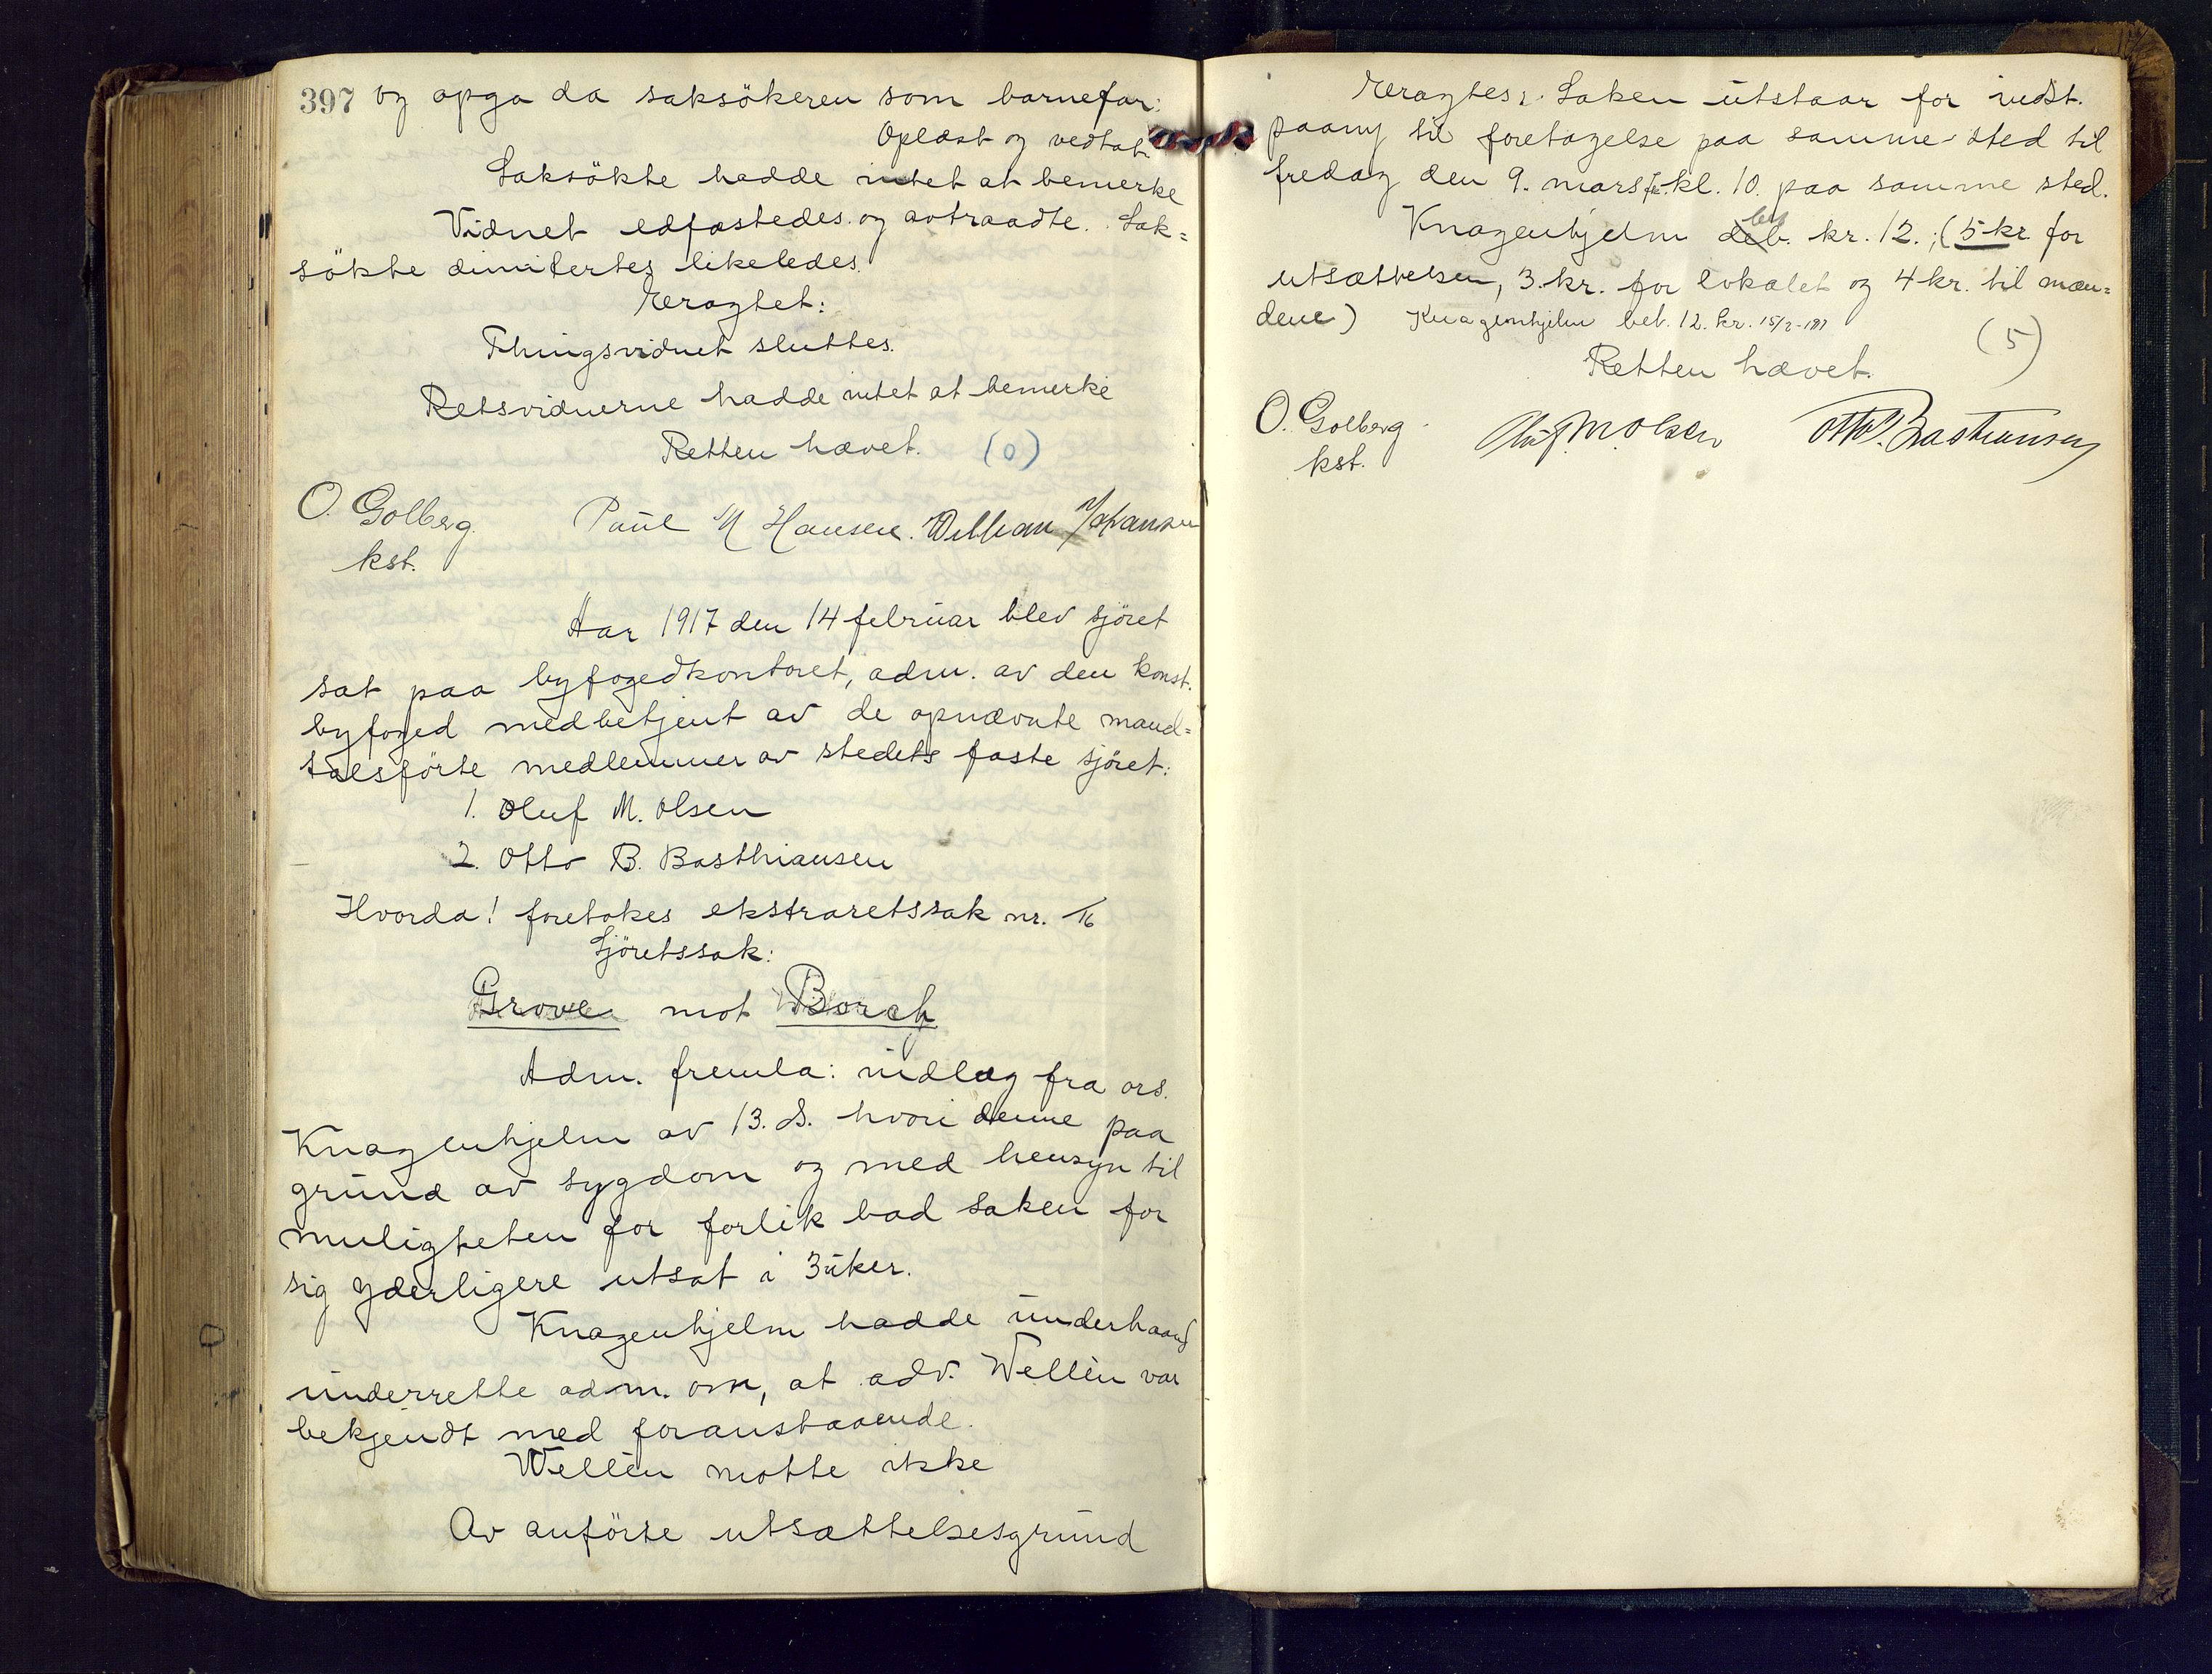 397 og opga da saksökeren som barnefar:
Oplæst og vedtat
Saksökte hadde intet at bemerke
Vidnet edfæstedes og avtraadte. Sak=
sökte dimitertes likeledes.
Eragtet:
Thingsvidnet sluttes.
Retsvidnerne hadde intet at bemerke
Retten hævet. (0)
O. Golberg.
kst.
Paul M Hansen. William Johansen
Aar 1917 den 14 februar blev sjöret
sat paa byfogedkontoret, adm. av den konst.
byfoged medbetjent av de opnævnte mand=
talsförte medlemmer av stedets faste sjöret:
1. Oluf M. Olsen
2. Otto B. Basthiansen
Hvorda! foretokes ekstraretssak nr. /16
Sjöretssak:
Grove mot Borch
Adm. fremla: indlæg fra ors.
Knagenhjelm av 13. ds. hvori denne paa
grund av sygdom og med hensyn til
muligheten for forlik bad saken for
sig yderligere utsat i 3 uker.
Knagenhjelm hadde underhaand
underrette adm. om, at adv. Wellèn var
bekjendt med foranstaaende.
Wellèn mötte ikke
Av anförte utsættelsesgrund
Eragtes: Saken utstaar for indst.
paany til foretagelse paa samme sted til
fredag den 9. mars kl. 10. paa samme sted.
Knagenhjelm bet. kr. 12.; (5 kr for
utsættelsen, 3. kr. for lokalet og 4 kr. til mæn=
dene) Knagenhjelm bet. 12. kr. 15/2-1917
(5)
Retten hævet.
O. Golberg
kst.
Oluf M Olsen Otto B. Bastiansen